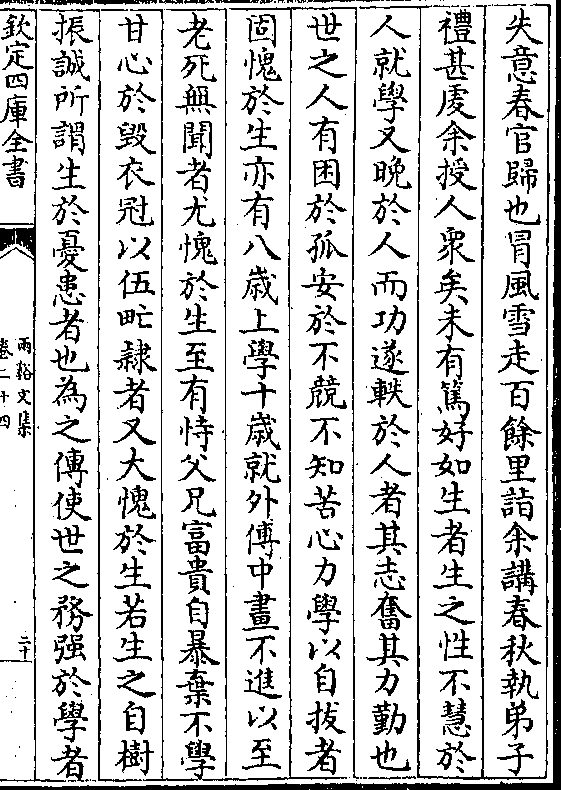 失意春官歸也冒風雪走百餘里詣余講春秋執弟子
禮甚䖍余授人衆矣未有篤好如生者生之性不慧於
人就學又晚於人而功遂軼於人者其志奮其力勤也
世之人有困於孤安於不競不知苦心力學以自拔者
固愧於生亦有八歲上學十歲就外傅中畫不進以至
老死無聞者尤愧於生至有恃父兄富貴自暴棄不學
甘心於毀衣冠以伍甿隸者又大愧於生若生之自樹
振誠所謂生於憂患者也為之傳使世之務强於學者
欽定四庫全書
兩谿文集
卷二十四
二十